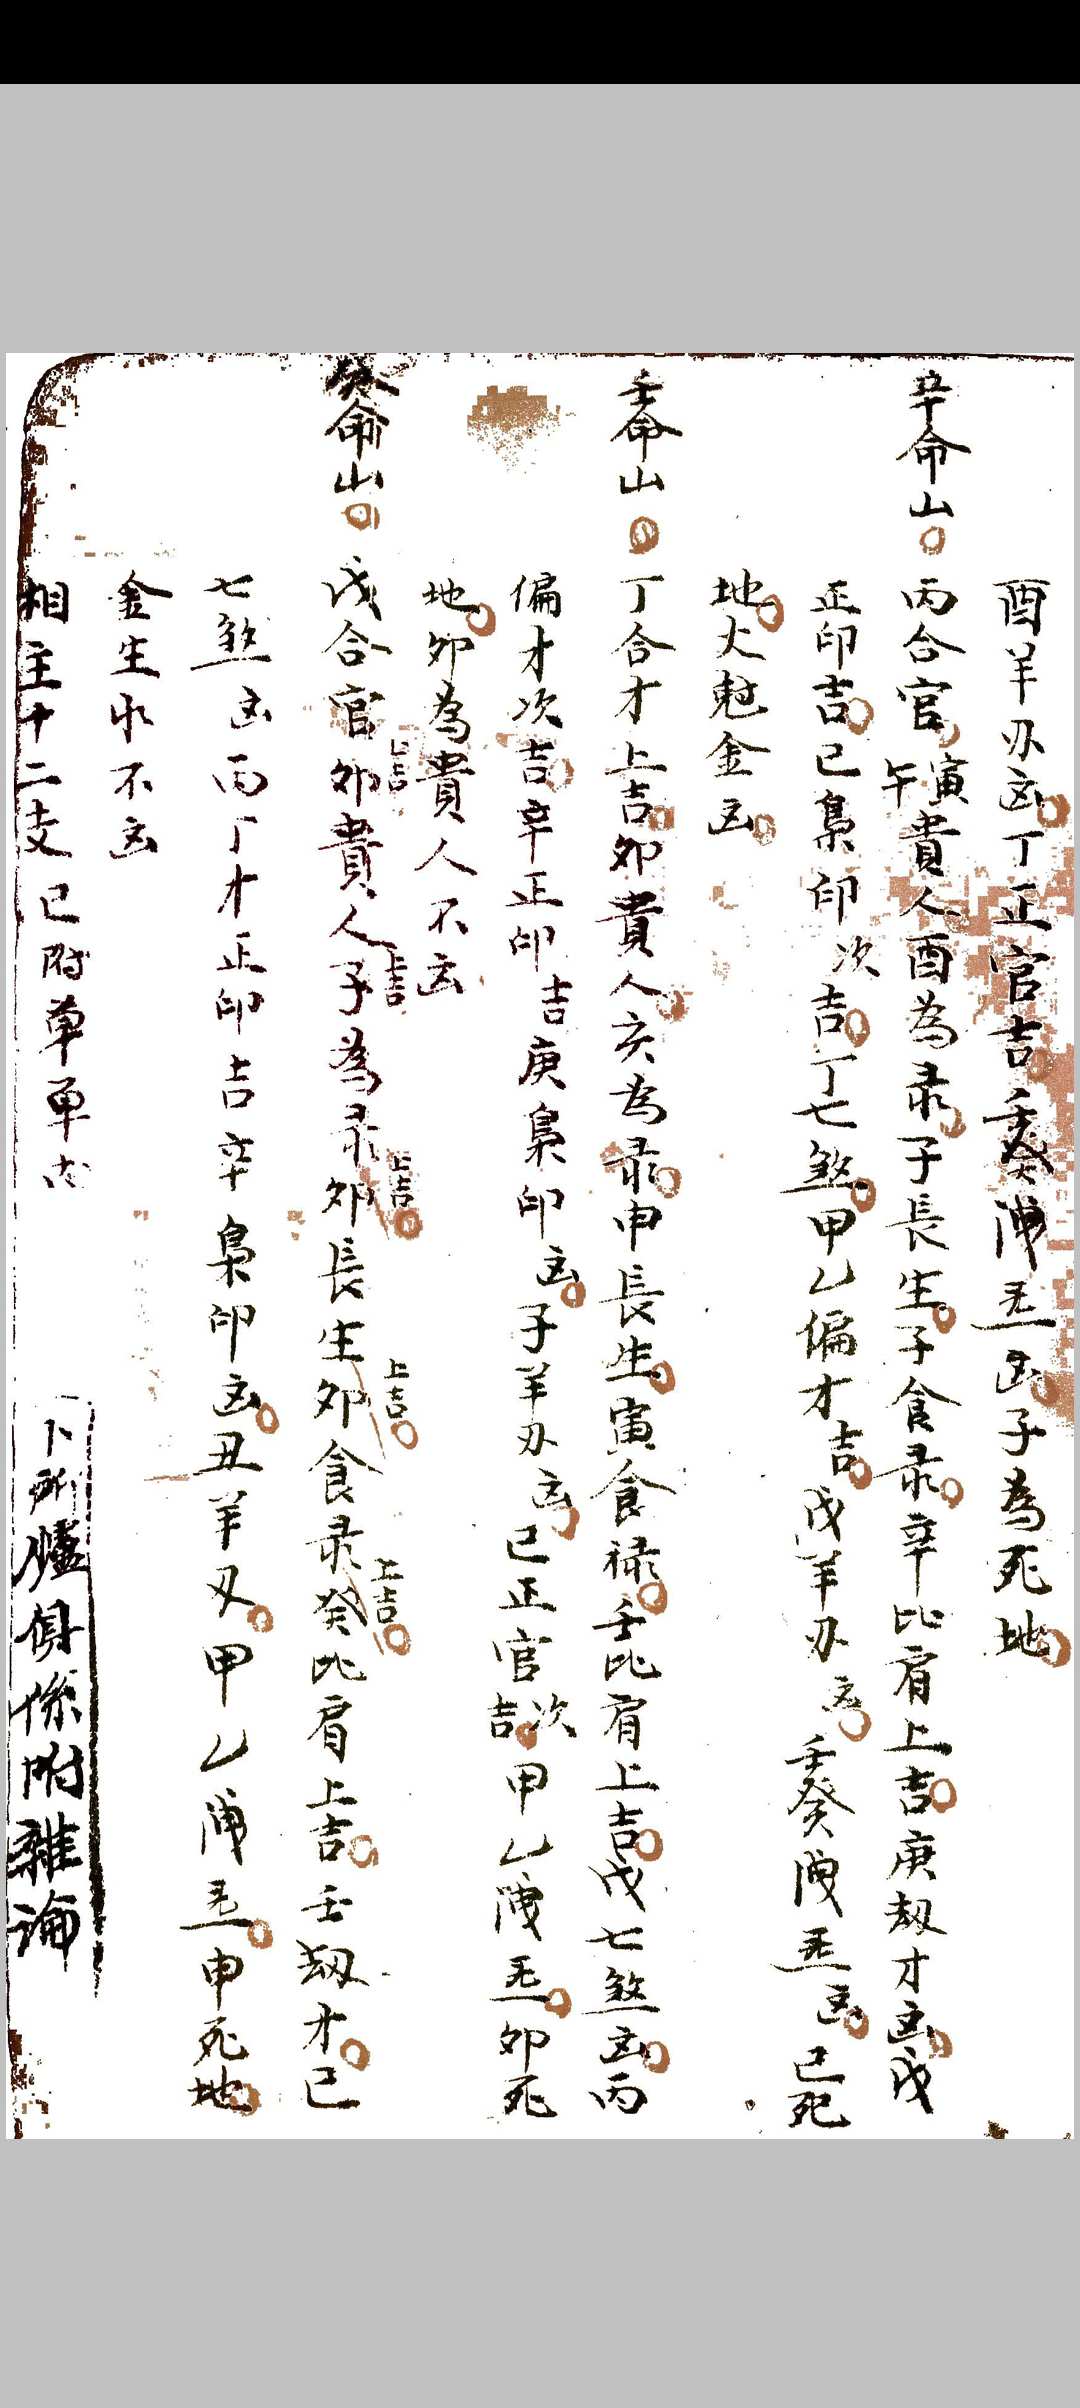 酉羊刃凶丁正官吉壬癸洩氣凶子為死地
辛命山 丙合官寅午貴人酉為录子長生子食录辛比肩上吉庚刼才凶戊
正印吉己梟印次吉丁七煞甲乙偏才吉戌羊刃凶壬癸洩氣凶巳死
地火尅金凶
壬命山 丁合才上吉卯貴人亥為录申長生寅食禄壬比肩上吉戊七煞凶丙
偏才次吉辛正印吉庚梟印凶子羊刃凶己正官次吉甲乙洩氣卯死
地卯為貴人不凶
癸命山 戊合官上吉卯貴人上吉子為录上吉卯長生上吉卯食录上吉癸比肩上吉壬刼才己
七煞凶丙丁才正印吉辛梟印凶丑羊刃甲乙洩氣申死地
金生水不凶
相主十二支已附單單内
卜所爐俱係附雜論